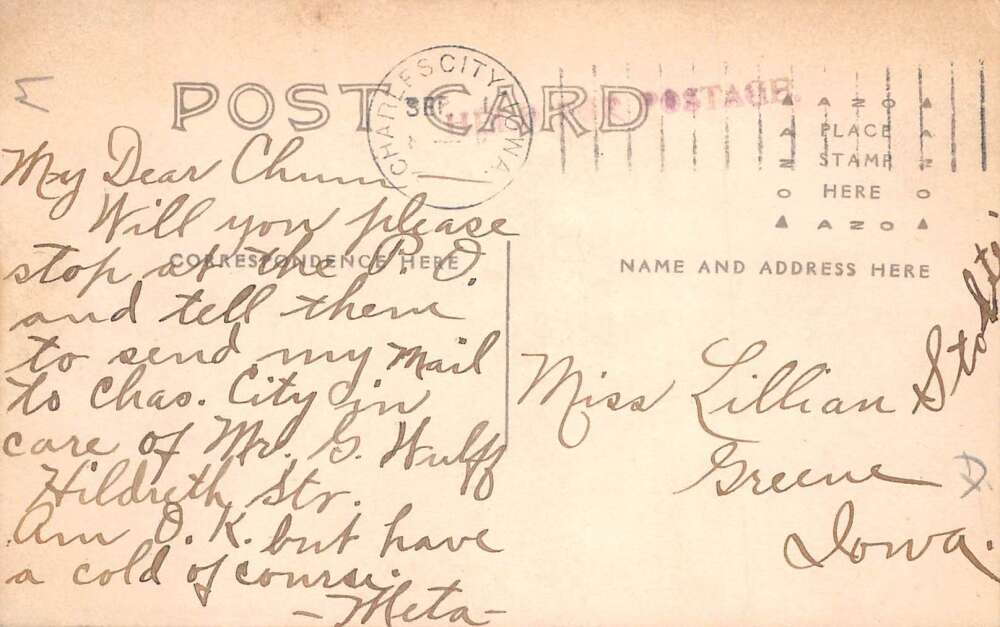 POST CARD
CHARLES CITY IOWA.
SEP
POSTAGE.
AZO
PLACE
STAMP
HERE
AZO
CORRESPONDENCE HERE
NAME AND ADDRESS HERE
My Dear Chum
Will you please
stop at the P. O.
and tell them
to send my mail
to Chas. City in
care of Mr. G. Wulff
Hildreth Str.
Am O. K. but have
a cold of course.
-Meta-
Miss Lillian
Greene
Iowa.
D.